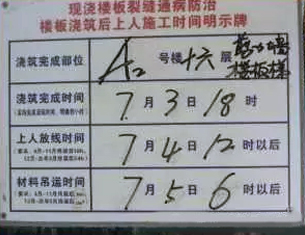 现浇楼板裂缝通病防治
楼板浇筑后上人施工时间明示牌
浇筑完成部位 A2 号楼 十六 层 剪力墙
楼板梯
浇筑完成时间 7 月 3 日 18 时
上人放线时间 7 月 4 日 12 时以后
材料吊运时间 7 月 5 日 6 时以后